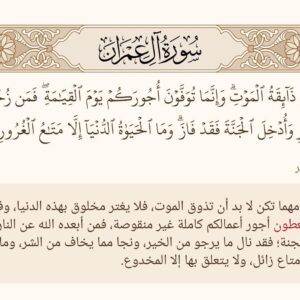 سُورَةُ آلِ عِمْرَانَ
ذَآئِقَةُ ٱلْمَوْتِۗ وَإِنَّمَا تُوَفَّوْنَ أُجُورَكُمْ يَوْمَ ٱلْقِيَٰمَةِۖ فَمَن زُحْ
وَأُدْخِلَ ٱلْجَنَّةَ فَقَدْ فَازَۗ وَمَا ٱلْحَيَوٰةُ ٱلدُّنْيَآ إِلَّا مَتَٰعُ ٱلْغُرُورِ
مهما تكن لا بد أن تذوق الموت، فلا يغتر مخلوق بهذه الدنيا، وف
عطون أجور أعمالكم كاملة غير منقوصة، فمن أبعده الله عن النار
جنة؛ فقد نال ما يرجو من الخير، ونجا مما يخاف من الشر، وما
متاع زائل، ولا يتعلق بها إلا المخدوع.